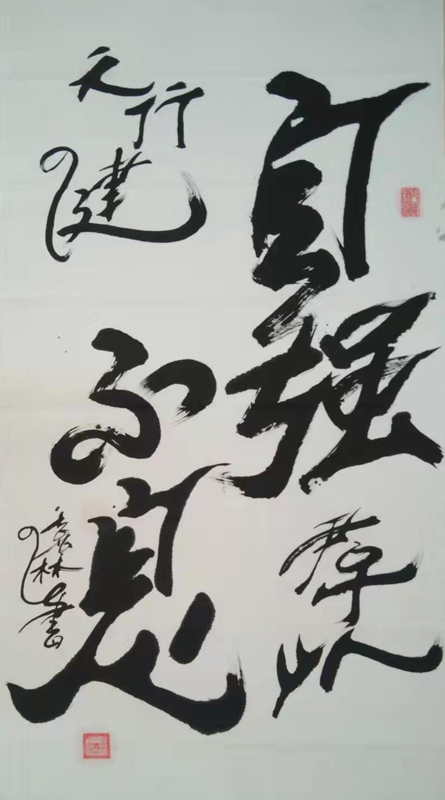 自强
君子以
天行健
不息
林书